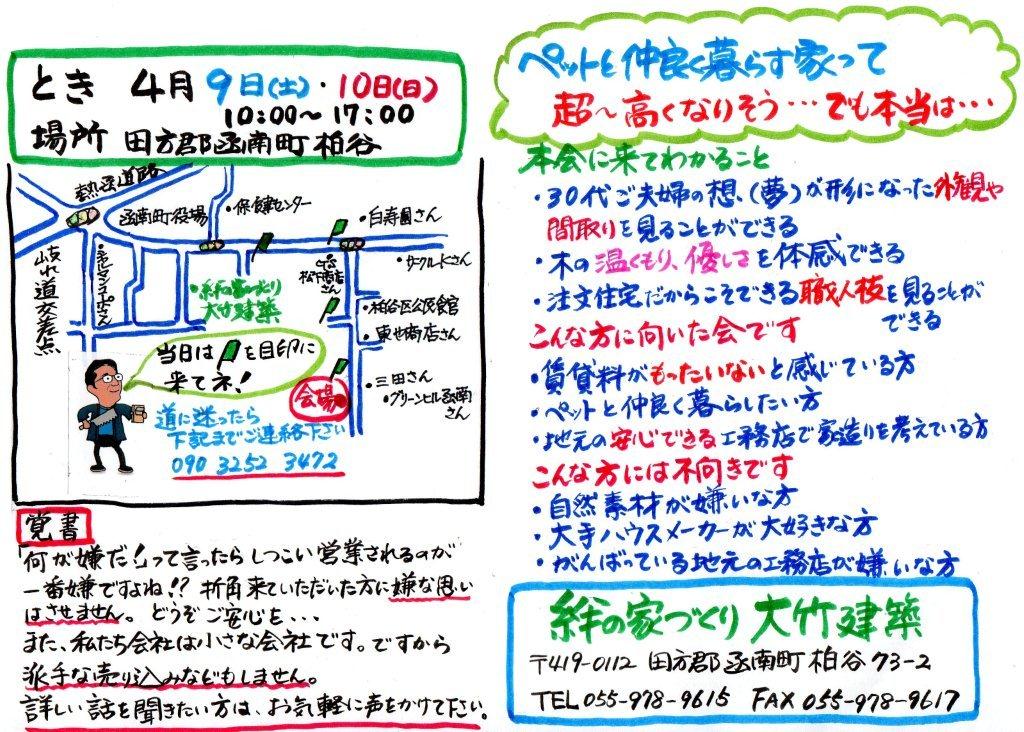 とき 4月 9日(土)・10日(日)
10:00〜17:00
場所 田方郡函南町柏谷
熱函道路
函南町役場
・保健センター
・白寿園さん
岐れ道交差点
・ネルマンユーポさん
松下商店さん
・サークルKさん
・絆の家づくり
大竹建築
・柏谷区公民館
・東也商店さん
当日は を目印に
来てネ!
・三田さん
・グリーンヒル函南さん
会場
道に迷ったら
下記までご連絡下さい
090 3252 3472
覚書
「何が嫌だ」って言ったらしつこい営業されるのが
一番嫌ですよね!? 折角来ていただいた方に嫌な思い
はさせません。どうぞご安心を・・・
また、私たち会社は小さな会社です。ですから
派手な売り込みなどもしません。
詳しい話を聞きたい方は、お気軽に声をかけて下さい。
ペットと仲良く暮らす家って
超〜高くなりそう…でも本当は…
本会に来てわかること
・30代ご夫婦の想い(夢)が形になった外観や
間取りを見ることができる
・木の温くもり、優しさを体感できる
・注文住宅だからこそできる職人技を見ることが
できる
こんな方に向いた会です
・賃貸料がもったいないと感じている方
・ペットと仲良く暮らしたい方
・地元の安心できる工務店で家造りを考えている方
こんな方には不向きです
・自然素材が嫌いな方
・大手ハウスメーカーが大好きな方
・がんばっている地元の工務店が嫌いな方
絆の家づくり 大竹建築
〒419-0112 田方郡函南町柏谷73-2
TEL 055-978-9615 FAX 055-978-9617